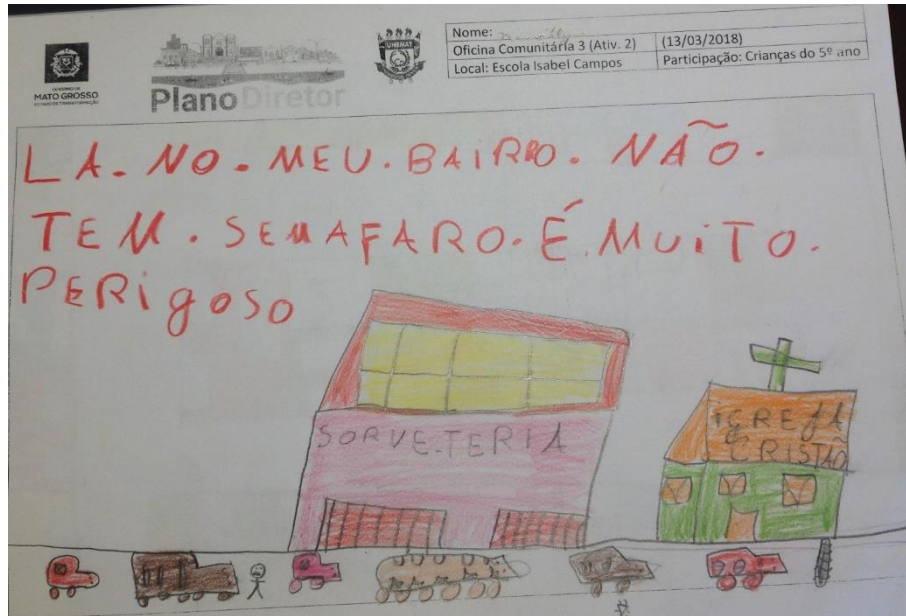 GOVERNO DE
MATO GROSSO
ESTADO DE TRANSFORMAÇÃO
Plano Diretor
UNEMAT
Nome:
Oficina Comunitária 3 (Ativ. 2)
(13/03/2018)
Local: Escola Isabel Campos
Participação: Crianças do 5º ano
LA. NO. MEU. BAiRRO. NÃO.
TEM. SEMAFARO. É. MUiTO.
PERigoso
SORVE.TERIA
IGREJA
CRISTÃO